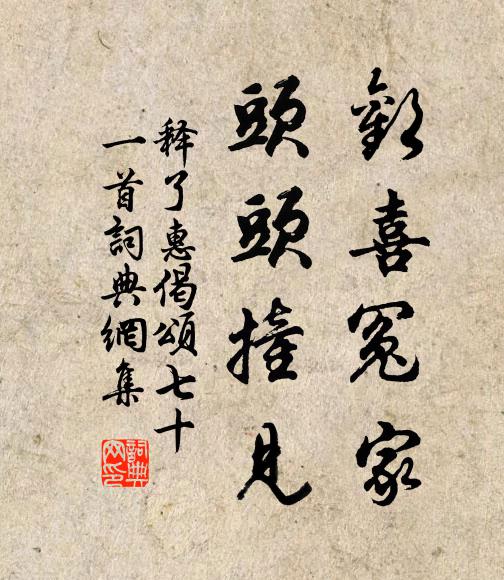 歡喜冤家
頭頭撞見
釋了惠偈頌七十
一首詞典網集
詞典網印